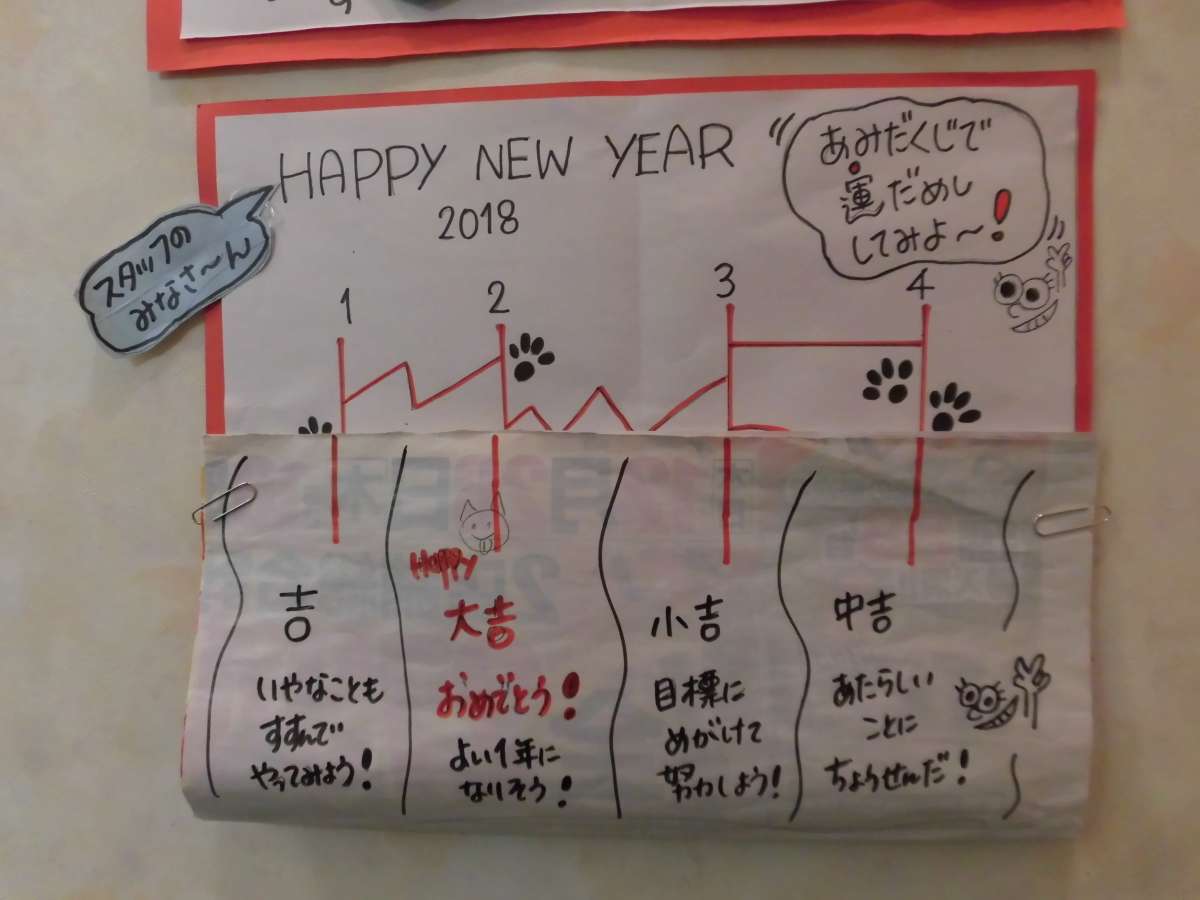 HAPPY NEW YEAR
2018
あみだくじで
運だめし
してみよ〜!
スタッフの
みなさ〜ん
1 2 3 4
吉
いやなことも
すすんで
やってみよう!
Happy
大吉
おめでとう!
よい1年に
なりそう!
小吉
目標に
めがけて
努力しよう!
中吉
あたらしい
ことに
ちょうせんだ!